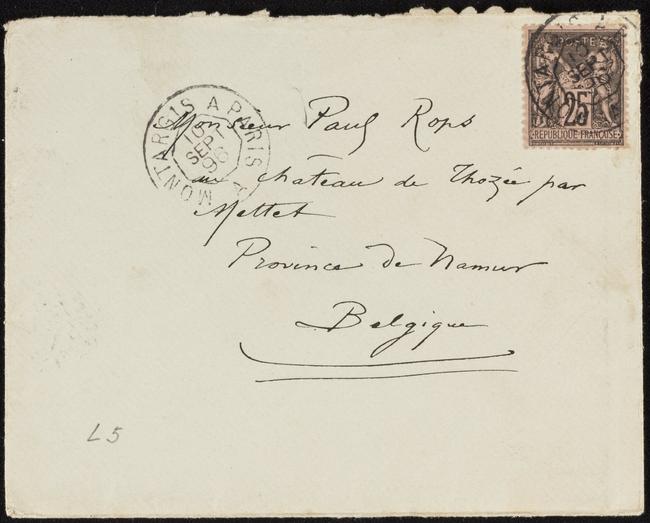 POSTES
25
REPUBLIQUE FRANÇAISE
MONTARGIS A PARIS
10
SEPT
96
Monsieur Paul Rops
au château de Thozée par
Mettet
Province de Namur
Belgique
L5